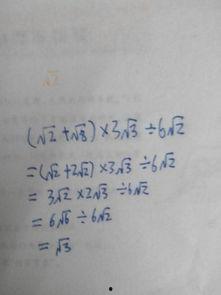 √2
(√2+√8)×3√3÷6√2
=(√2+2√2)×3√3÷6√2
=3√2×2√3÷6√2
=6√6÷6√2
=√3